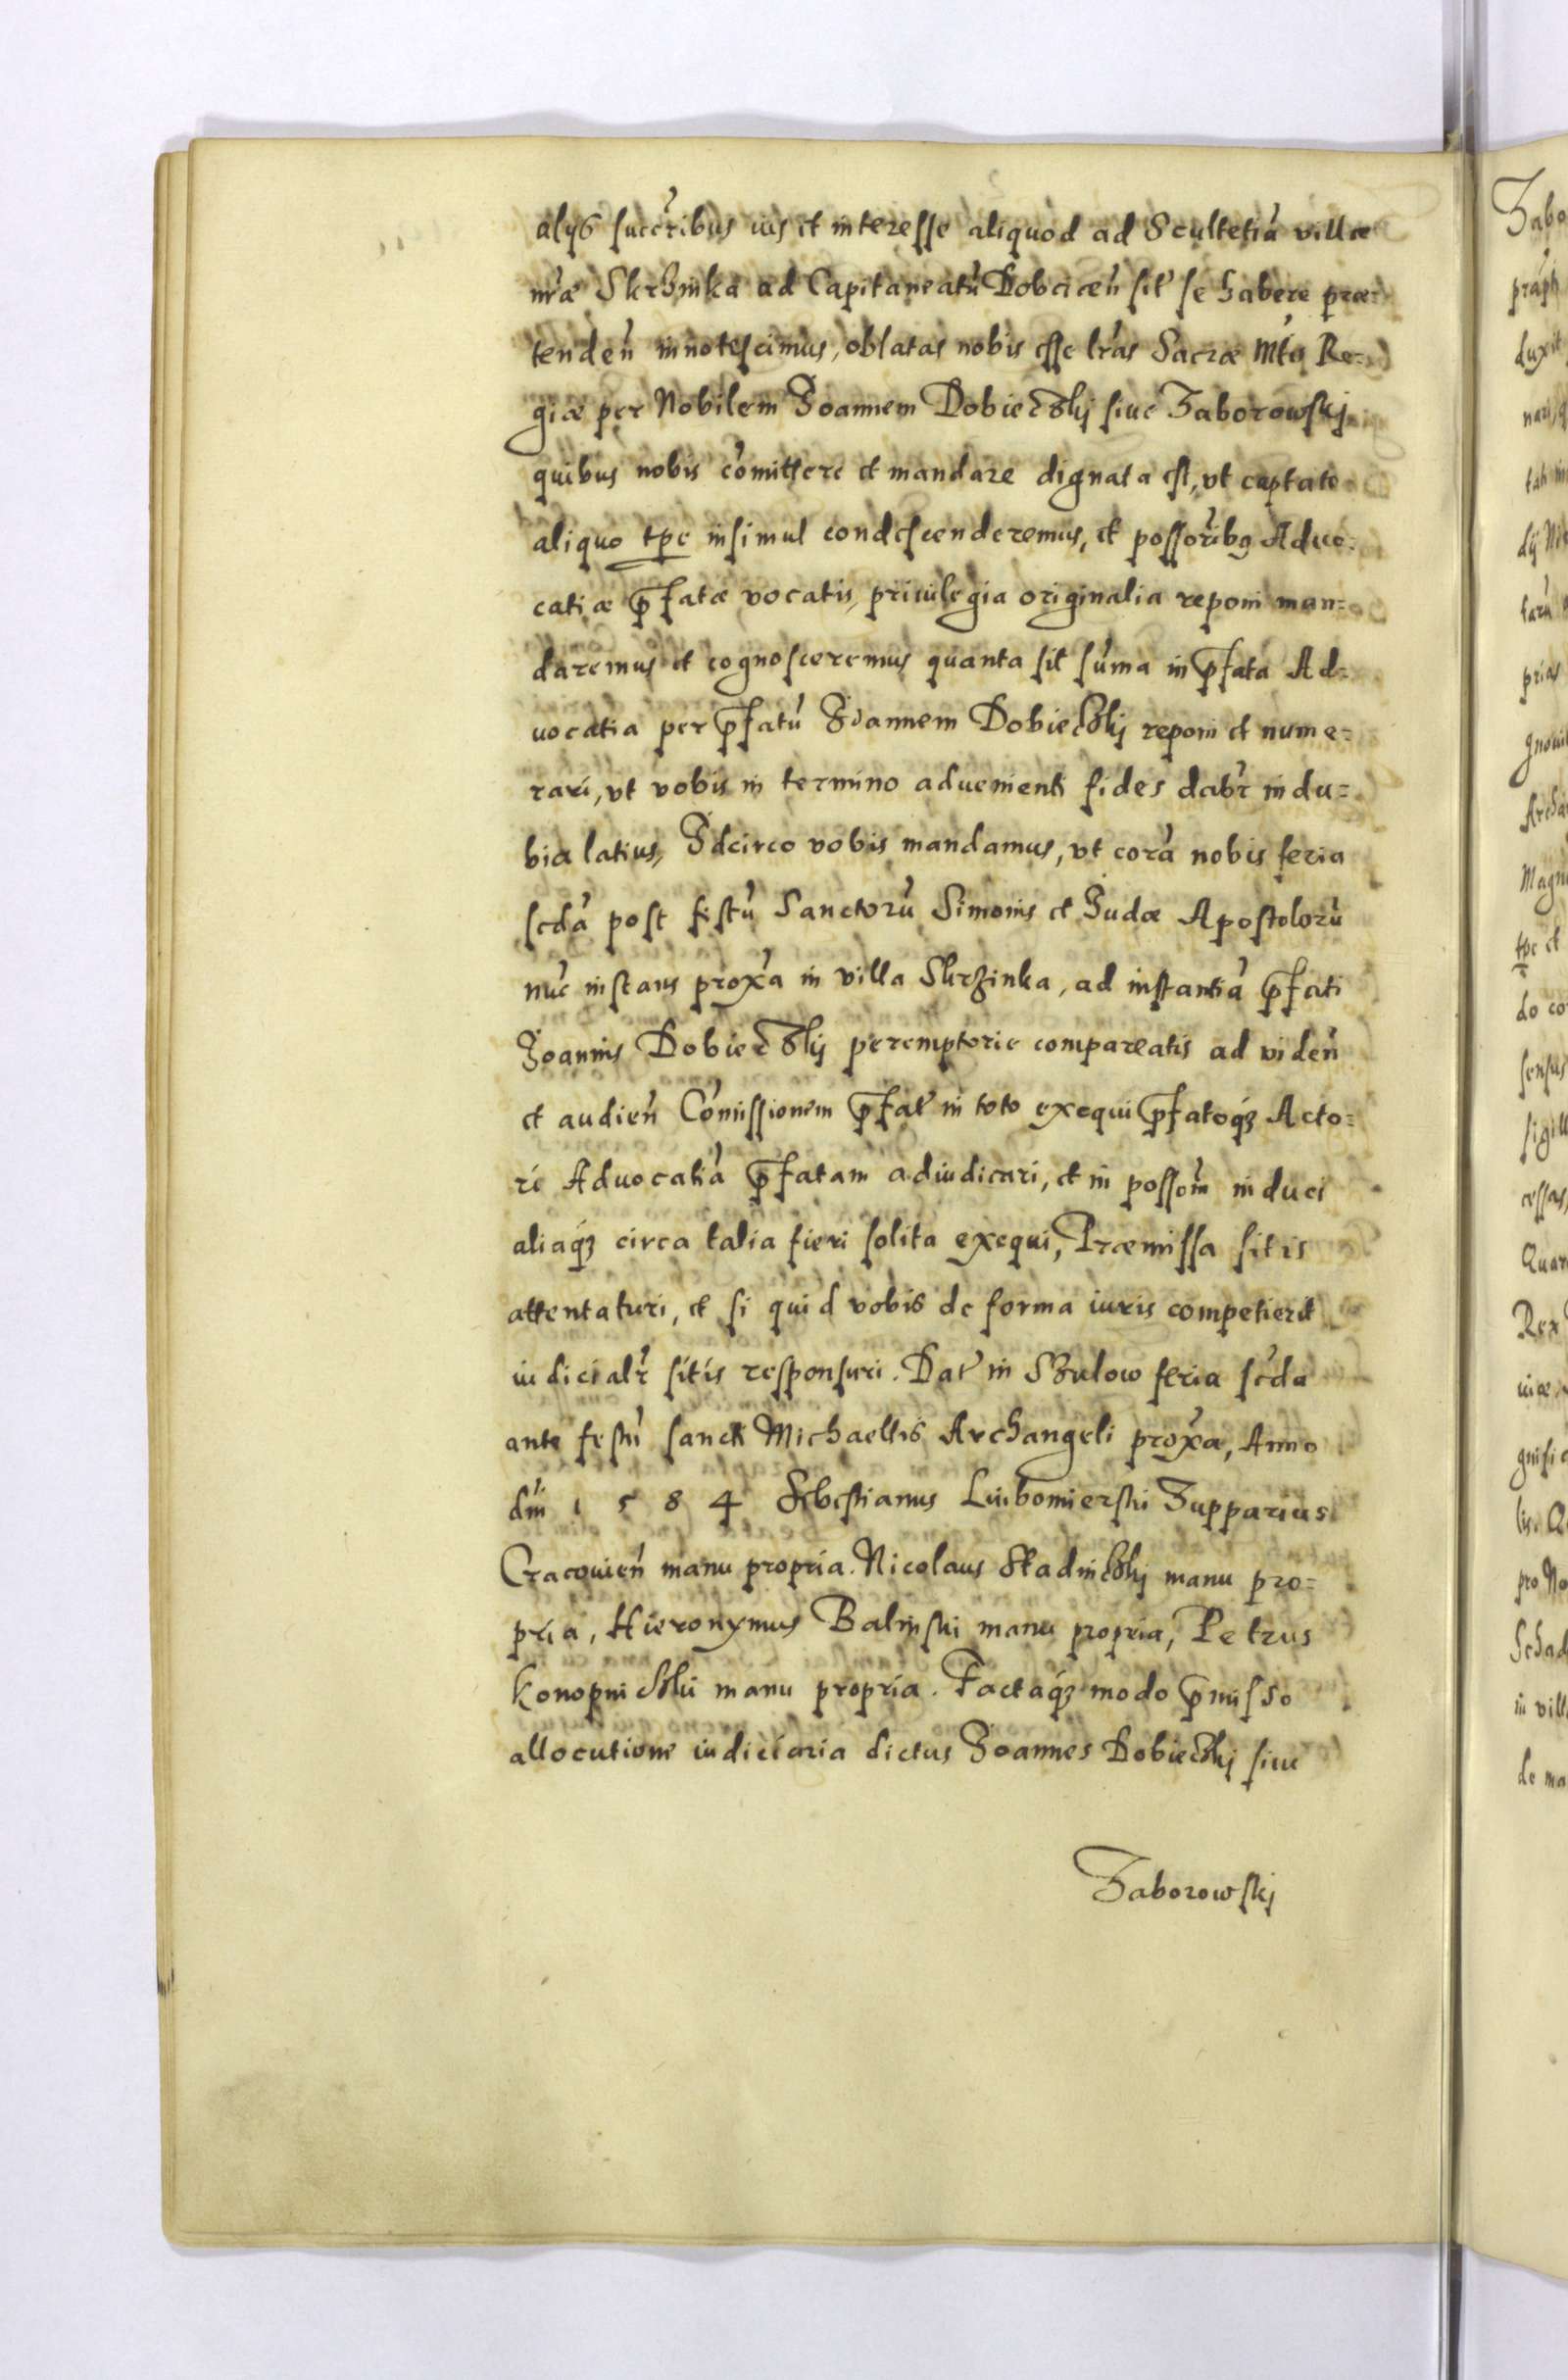 alijs succ'ribus ius et interesse aliquod ad Scultetiā villæ
nr'æ Skrzinka ad Capitaneatū Dobcicen̄ sit' se habere præ=
tenden̄ innotescimus, oblatas nobis esse lr'as Sacræ Mt'is Re=
giæ per Nobilem Joannem Dobieczkij siue Zaborowskij
quibus nobis cōmittere et mandare dignata est, vt captato
aliquo tp̄e insimul condescenderemus, et possor'ibq Aduo=
catiæ p̄fatæ vocatis, priuilegia originalia reponi man=
daremus et cognosceremus quanta sit sūma in p̄fata Ad=
uocatia per p̄fatū Joannem Dobieczkij reponi et nume=
rari, vt vobis in termino aduenienti fides dabr' indu=
bia latius, Idcirco vobis mandamus, vt corā nobis feria
scdā post festū Sanctorū Simonis et Judæ Apostolorū
nūc instans prox'a in villa Skrzinka, ad instantiā p̄fati
Joannis Dobieczkij peremptorie compareatis ad viden̄
et audien̄ Cōmissionem p̄fat' in toto exequi p̄fatoq3 Acto=
ri Aduocatiā p̄fatam adiudicari, et in possom̄ induci
aliaq3 circa talia fieri solita exequi, Præmissa sitis
attentaturi, et si quid vobis de forma iuris competierit
iudicialr' sitis responsuri. Dat' in Szulow feria scd'a
ante festū sancti Michaellis Archangeli prox'a, Anno
dn̄i 1584 Sebestianus Luibomierski Zupparius
Cracouien̄ manu propria. Nicolaus Stadniczkij manu pro=
pria, Hieronymus Balinski manu propria, Petrus
Konopniczkii manu propria. Factaq3 modo p̄misso
allocutione iudiciaria dictus Joannes Dobieczkij siue
Zaborowskij